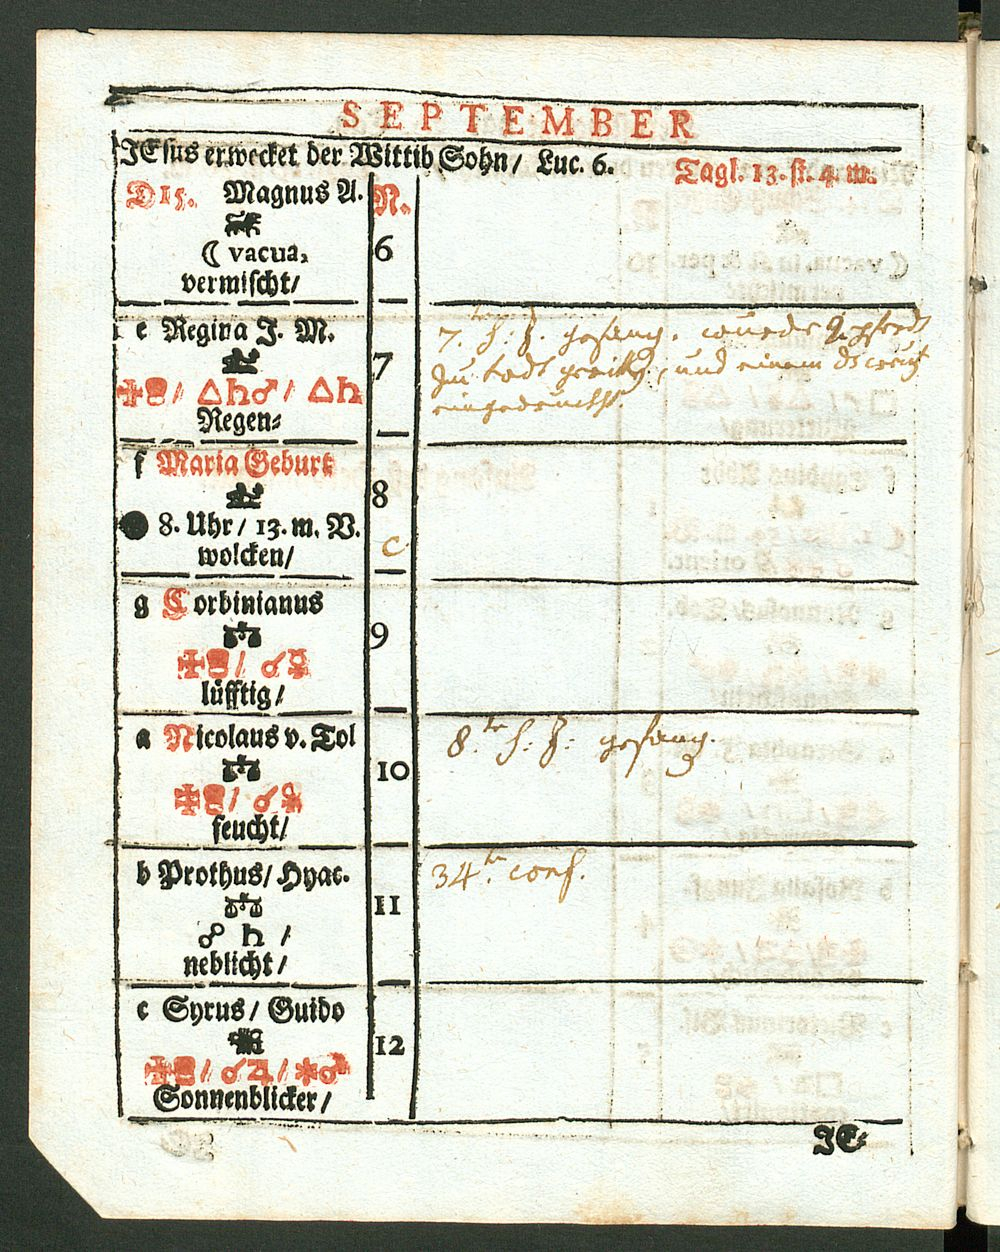 SEPTEMBER
JEsus erwecket der Wittib Sohn/ Luc. 6. Tagl. 13. st. 4. m.
D 15. Magnus A. N.
☾ vacua, 6
vermischt/
e Regina J. M. 7
△♄♂/ △♄
Regen⸗
7. h: h. gefang. wurde 2 pferdt
zu todt geritten, und einem
eingedruckht.
f Maria Geburt 8
8. Uhr/ 13. m. V. C
wolcken/
g Corbinianus 9
/ ☌☿
lüfftig/
a Nicolaus v. Tol 10
/ ☌
feucht/
8.te h: h: gefang.
b Prothus/ Hyac. 11
☍ ♄ /
neblicht/
34.te conf.
c Syrus/ Guido 12
/ ☌♃/ ⚹♂
Sonnenblicker/
JE⸗